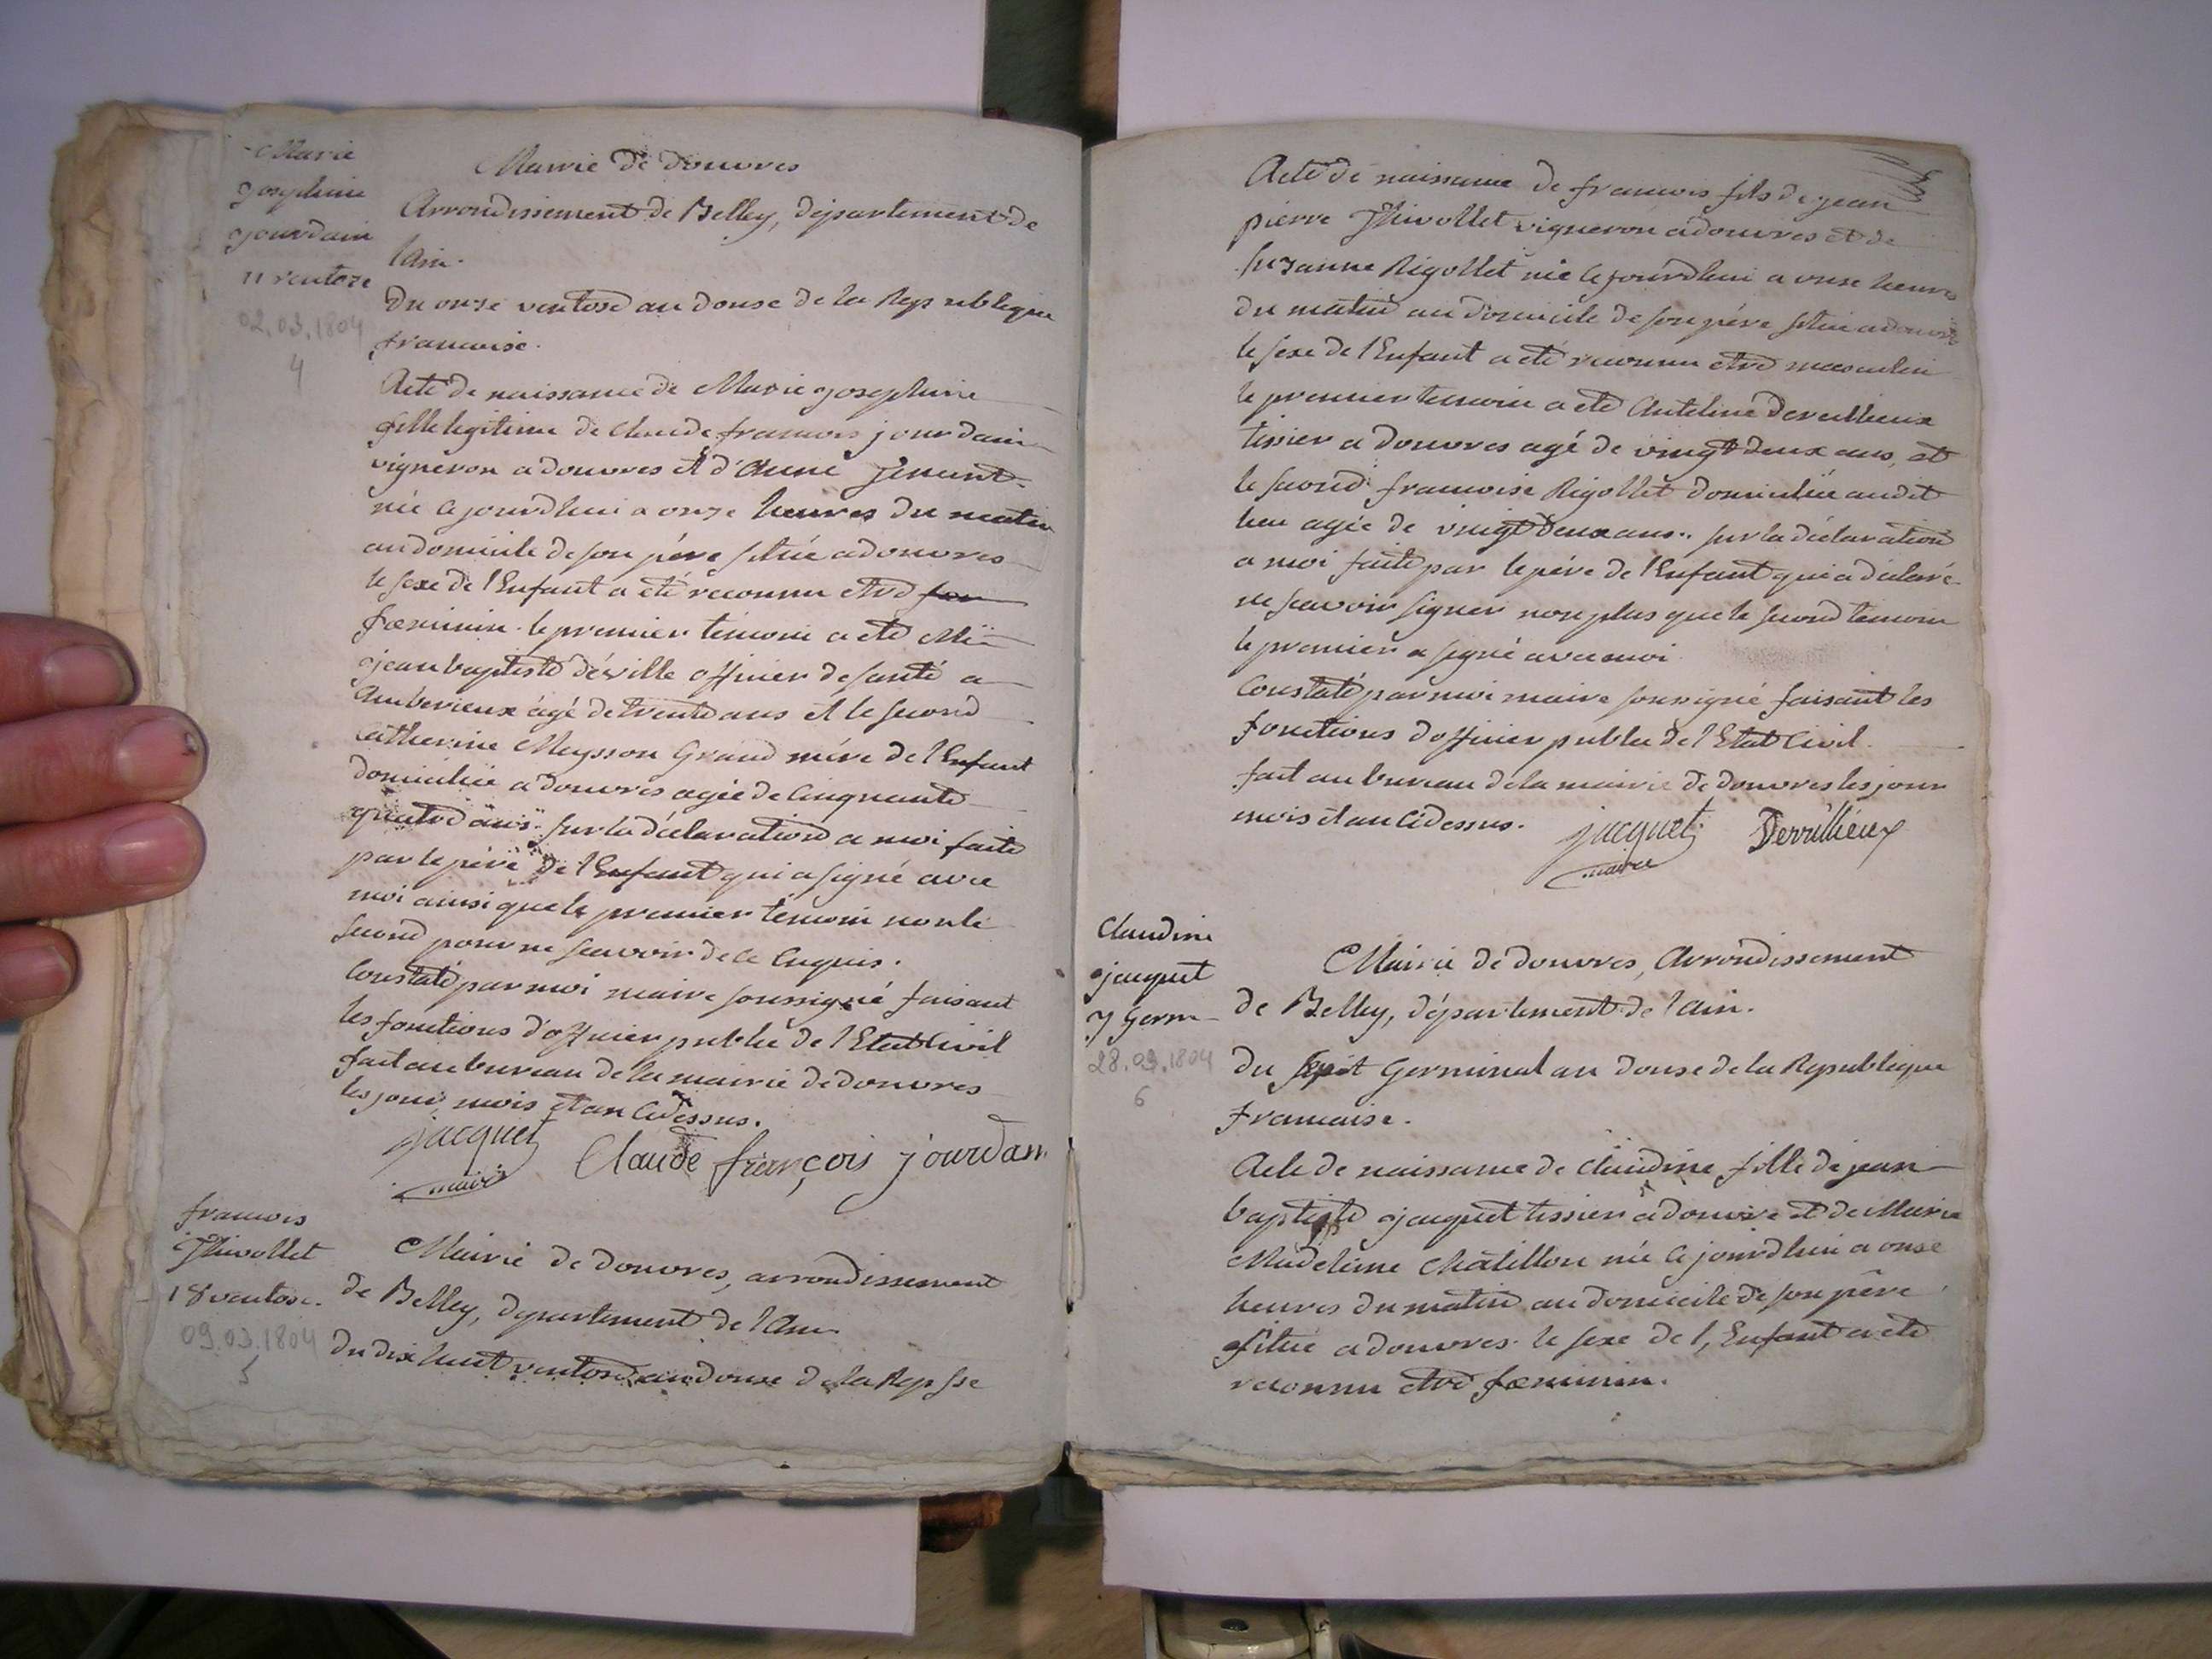 Marie
josephine
jourdain
11 ventose
02.03.1804
4
Mairie de douvres
Arrondissement de Belley, département de
l'ain.
Du onze ventose an douse de la Republique
francoise.
Acte de naissance de Marie josephine
fille legitime de Claude francois jourdain
vigneron a douvres et d'Anne
née cejourdhui a onze heures du matin
au domicile de son pére situé a douvres
le sexe de l'Enfant a eté reconnu etre
fœminin. le premier temoin a eté
jean baptiste déville officier de santé a
Amberieux agé de trente ans et le second
Catherine Meysson Grand mére de l'Enfant
domiciliée a douvres agée de Cinquante
quatre ans. sur la déclaration a moi faite
par le pére de l'Enfant qui a signé avec
moi ainsi que le premier temoin non le
second pour ne scavoir de ce Enquis.
Constaté par moi maire soussigné faisant
les fonctions d'officier public de l'Etat Civil
fait au bureau de la mairie de douvres
les jour, mois et an Cidessus.
jacquet
maire
Claude françois jourdain
francois
Thivollet
18 ventose.
09.03.1804
5
Mairie de douvres, arrondissement
de Belley, departement de l'Ain
du dix huit ventose an douse de la Rep fse
Acte de naissance de francois fils de jean
pierre Thivollet vigneron a douvres et de
suzanne Rigollet née cejourdhui a onse heures
du matin au domicile de son pére situé a douvres
le sexe de l'Enfant a eté reconnu etre masculin
le premier temoin a eté Antelme Dervillieux
tissier a douvres agé de vingt deux ans, et
le second francoise Rigollet domiciliée audit
lieu agée de vingt deux ans. sur la déclaration
a moi faite par le pére de l'Enfant qui a déclaré
ne scavoir signer non plus que le second temoin
le premier a signé avec moi
Constaté par moi maire soussigné faisant les
fonctions d'officier public de l'Etat Civil.
fait au bureau de la mairie de douvres les jour
mois et an Cidessus.
jacquet
maire
Dervillieux
Claudine
jacquet
7 Germ
28.03.1804
6
Mairie de douvres, Arrondissement
de Belley, département de l'ain.
du sept Germinal an douse de la Republique
francaise.
Acte de naissance de Claudine, fille de jean
baptiste jacquet tissier a douvre et de Marie
Madeleine Chatillon née cejourdhui a onse
heures du matin au domicile de son pére
situé a douvres. le sexe de l'Enfant a eté
reconnu etre fœminin.